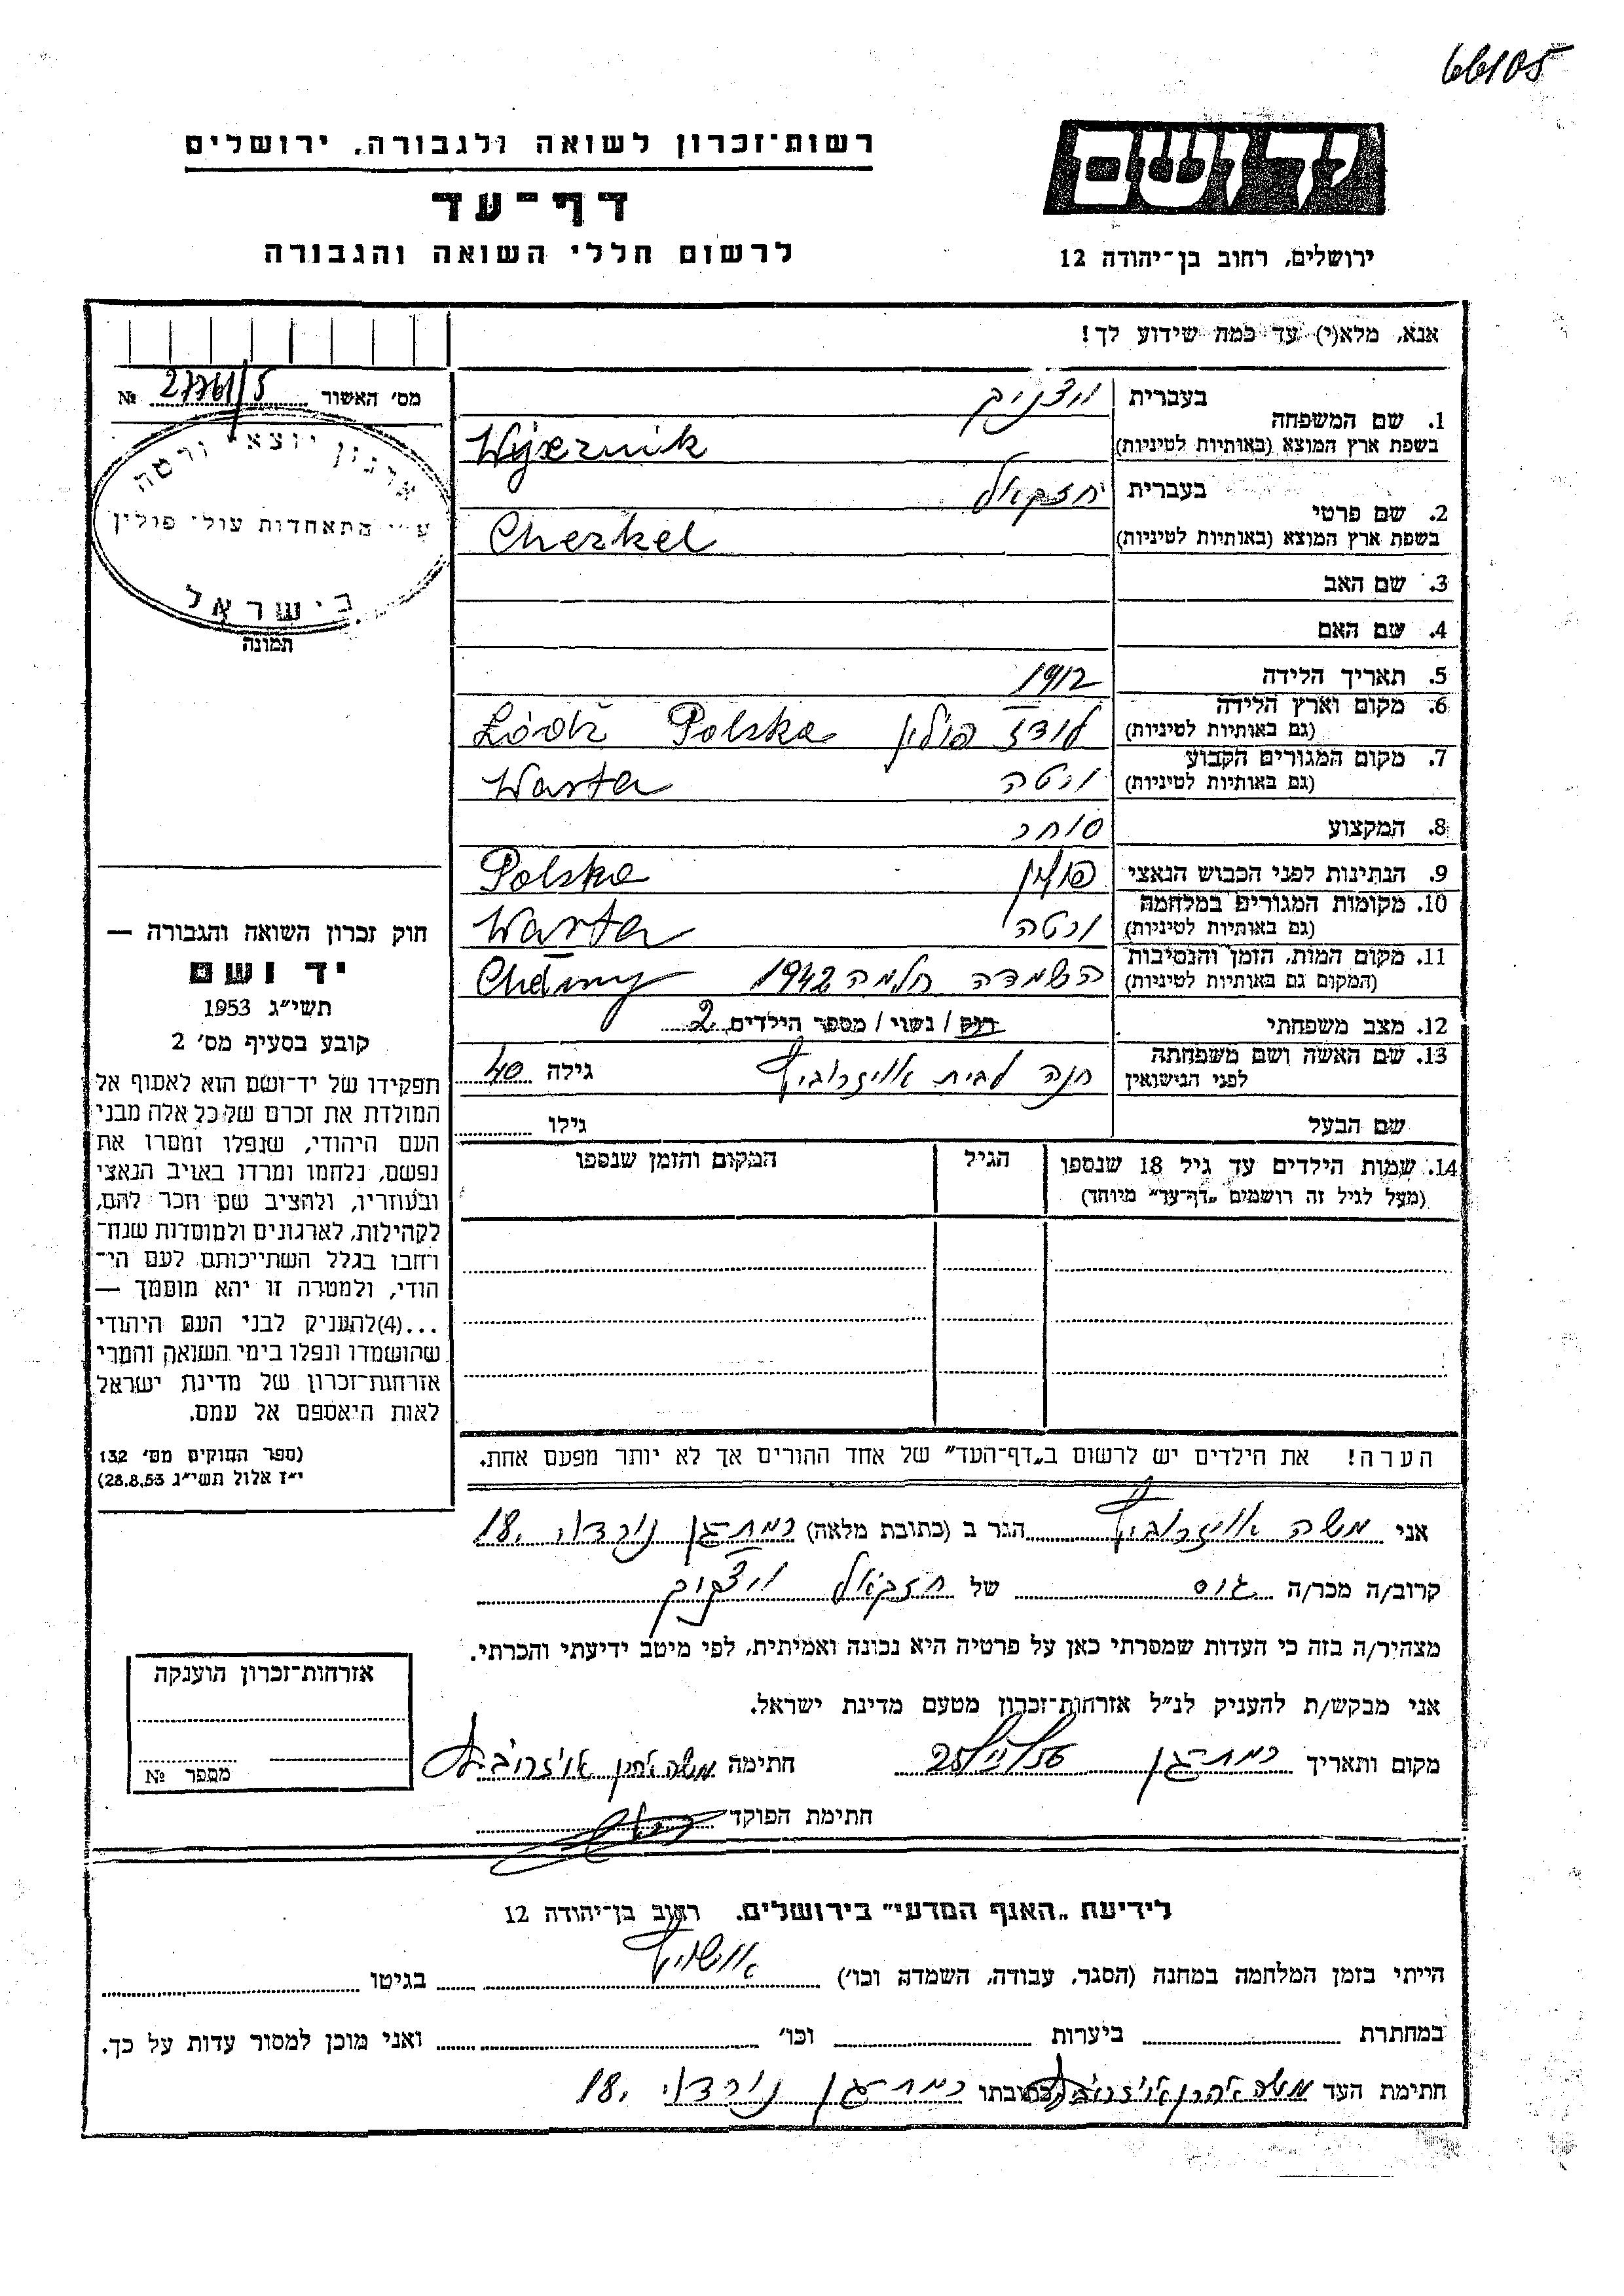 66105
יד ושם
ירושלים, רחוב בן־יהודה 12
רשות־זכרון לשואה ולגבורה, ירושלים
דף־עד
לרשום חללי השואה והגבורה
אנא, מלא(י) עד כמה שידוע לך!
מס׳ האשור 27761/5 №
ארגון יוצאי ורטה
ע״י התאחדות עולי פולין
בישראל
תמונה
1. שם המשפחה
בעברית
בשפת ארץ המוצא (באותיות לטיניות) Wjernik
2. שם פרטי
בעברית חזקאל
בשפת ארץ המוצא (באותיות לטיניות) Cheskel
3. שם האב
4. שם האם
5. תאריך הלידה 1912
6. מקום וארץ הלידה
(גם באותיות לטיניות) לודז פולין Polska Łódź
7. מקום המגורים הקבוע
(גם באותיות לטיניות) ורטה Warta
8. המקצוע סוחר
9. הנתינות לפני הכבוש הנאצי פולין Polska
10. מקומות המגורים במלחמה
(גם באותיות לטיניות) ורטה Warta
11. מקום המות, הזמן והנסיבות
(המקום גם באותיות לטיניות) השמדה חלמה 1942
12. מצב משפחתי רוק / נשוי / מספר הילדים 2
13. שם האשה ושם משפחתה
לפני הנישואין חנה לבית אויזרוביץ גילה 40
שם הבעל גילו
14. שמות הילדים עד גיל 18 שנספו
(מעל לגיל זה רושמים „דף־עד״ מיוחד)
הגיל
המקום והזמן שנספו
חוק זכרון השואה והגבורה —
יד ושם
תשי״ג 1953
קובע בסעיף מס׳ 2
תפקידו של יד־ושם הוא לאסוף אל
המולדת את זכרם של כל אלה מבני
העם היהודי, שנפלו ומסרו את
נפשם, נלחמו ומרדו באויב הנאצי
ובעוזריו, ולהציב שם וזכר להם,
לקהילות, לארגונים ולמוסדות שנח־
רחבו בגלל השתייכותם לעם הי־
הודי, ולמטרה זו יהא מוסמך —
...(4) להעניק לבני העם היהודי
שהושמדו ונפלו בימי השואה והמרי
אזרחות־זכרון של מדינת ישראל
לאות היאספם אל עמם.
(ספר החוקים מס׳ 132
י״ז אלול תשי״ג 28.8.53)
הערה! את הילדים יש לרשום ב„דף־העד״ של אחד ההורים אך לא יותר מפעם אחת.
אני משה אויזרוביץ הגר ב (כתובת מלאה) רמת־גן נורדוי 18.
קרוב/ה מכר/ה גיס של חזקאל
מצהיר/ה בזה כי העדות שמסרתי כאן על פרטיה היא נכונה ואמיתית, לפי מיטב ידיעתי והכרתי.
אני מבקש/ת להעניק לנ״ל אזרחות־זכרון מטעם מדינת ישראל.
מקום ותאריך רמת־גן חתימה משה אהרן אויזרוביץ
חתימת הפוקד
אזרחות־זכרון הוענקה
מספר №
לידיעת „האגף המדעי״ בירושלים, רחוב בן־יהודה 12
הייתי בזמן המלחמה במחנה (הסגר, עבודה, השמדה וכו׳) אושויץ בגיטו
במחתרת ביערות וכו׳ ואני מוכן למסור עדות על כך.
חתימת העד משה אהרן אויזרוביץ כתובתו רמת־גן נורדוי 18.